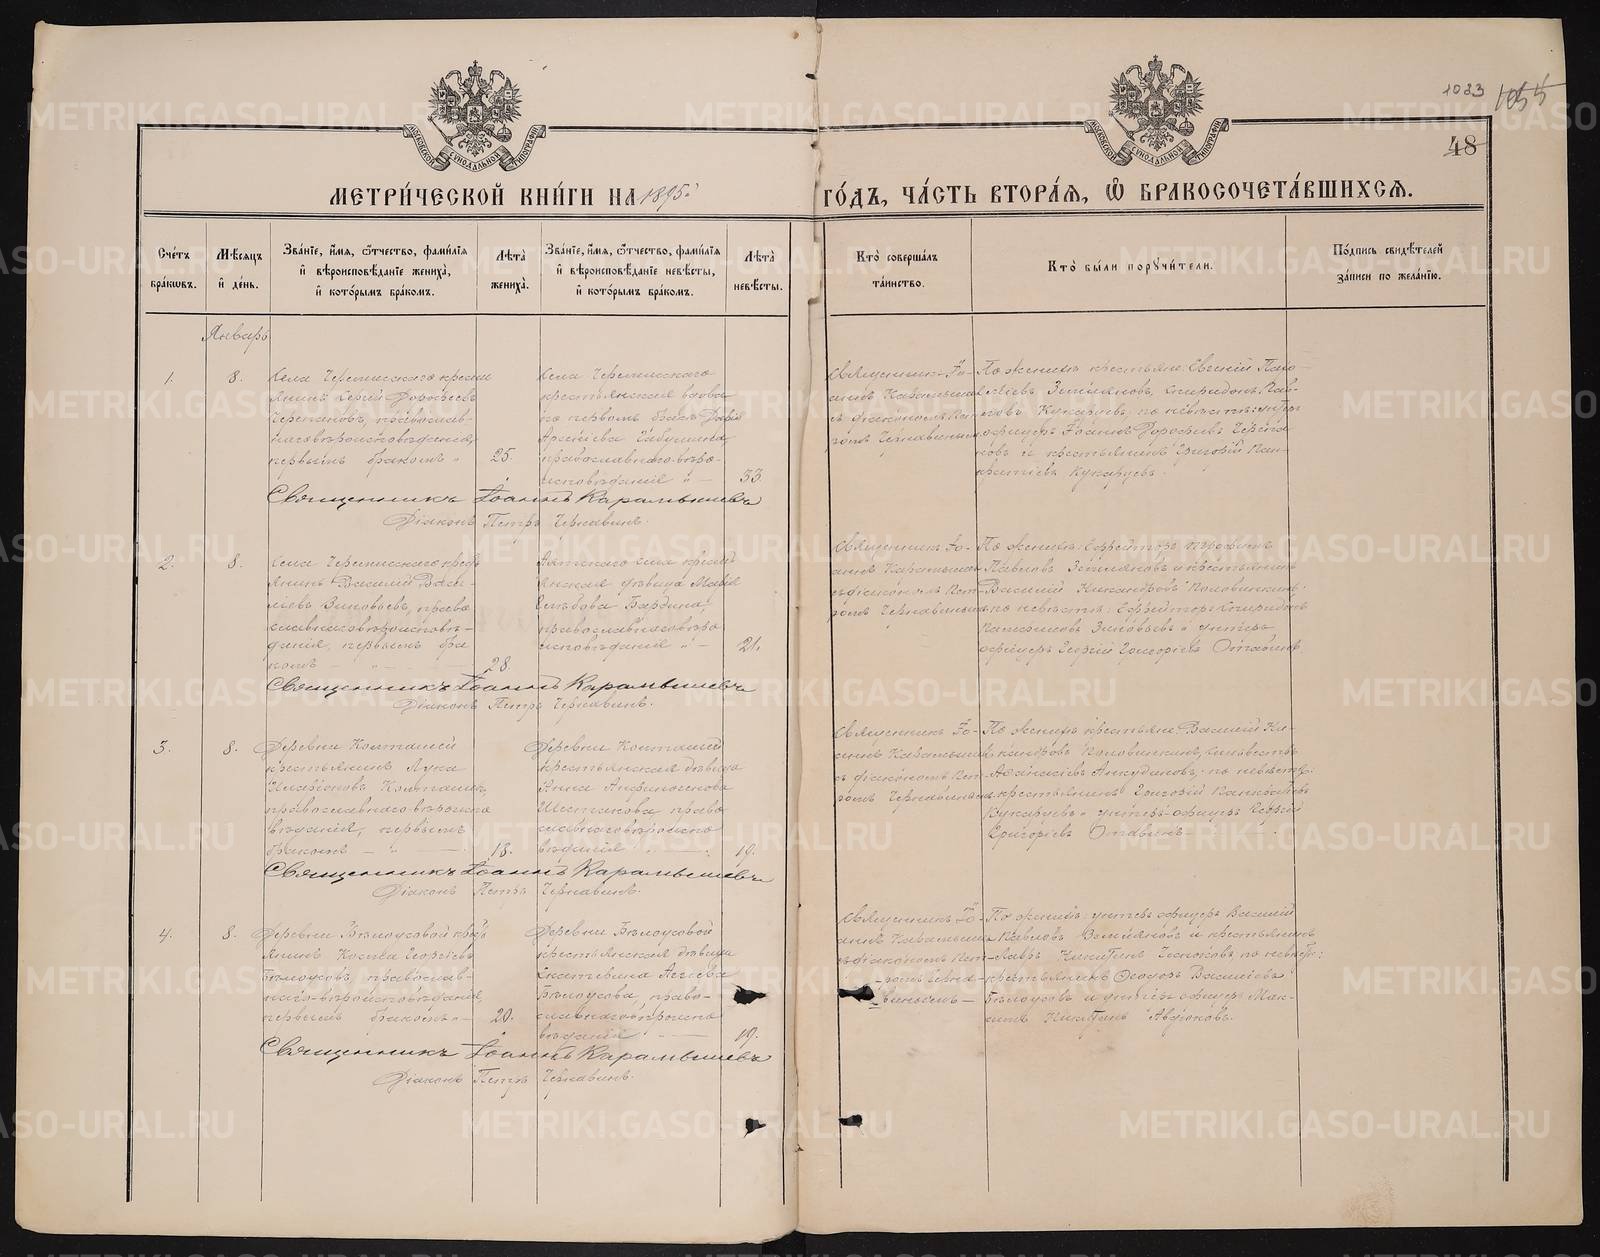 1033 1055
48
МЕТРИ́ЧЕСКОЙ КНИ́ГИ НА 1895й ГО́ДЪ, ЧА́СТЬ ВТОРА́Я, Ѡ БРАКОСОЧЕТА́ВШИХСЯ.
МОСКОВСКОЙ СУНОДАЛЬНОЙ ТИПОГРАФІИ
МОСКОВСКОЙ СУНОДАЛЬНОЙ ТИПОГРАФІИ
Сче́тъ бра́кѡвъ.
Мѣ́сяцъ и҆ де́нь.
Зва́нїе, и҆́мя, ѻ҆́тчество, фами́лїя и҆ вѣроисповѣ́данїе жениха̀, и҆ кото́рымъ бра́комъ.
Лѣ́та жениха̀.
Зва́нїе, и҆́мя, ѻ҆́тчество, фами́лїя и҆ вѣроисповѣ́данїе невѣ́сты, и҆ кото́рымъ бра́комъ.
Лѣ́та невѣ́сты.
Кто̀ соверша́лъ та́инство.
Кто̀ бы́ли поручи́тели.
По́дпись свидѣ́телей за́писи по жела́нїю.
Январь
1.
8.
Села Черемисскаго крестьянинъ Дорофеевъ Черепановъ, православнаго вѣроисповѣданія, первымъ бракомъ
25.
Села Черемисскаго
крестьянская вдова
по первомъ бракѣ Дарія
православнаго вѣроисповѣданія
33.
Священникъ Іоаннъ Карамышевъ с діакономъ Петромъ Чернавинымъ
По женихѣ крестьяне Евгеній
Земляновъ, Спиридонъ Павловъ Кукарцевъ, по невѣстѣ: унтеръ
офицеръ Іоаннъ Дорофеевъ Черепановъ и крестьянинъ Григорій Панкратіевъ Кукарцевъ.
Священникъ Іоаннъ Карамышевъ
Діаконъ Петръ Чернавинъ.
2.
8.
Села Черемисскаго крестьянинъ Василій Василіевъ Зиновьевъ, православнаго вѣроисповѣданія, первымъ бракомъ
28.
Аятскаго села крестьянская дѣвица Марія
Глѣбова Бардина,
православнаго вѣроисповѣданія
21.
Священникъ Іоаннъ Карамышевъ съ діакономъ Петромъ Чернавинымъ
По женихѣ: Ефрейторъ
Павловъ Земляновъ и крестьянинъ
Василій Никандровъ Половинкинъ;
по невѣстѣ: Ефрейторъ Спиридонъ
Зиновьевъ и унтеръ
офицеръ Георгій Григоріевъ Ставинъ
Священникъ Іоаннъ Карамышевъ
Діаконъ Петръ Чернавинъ.
3.
8.
Деревни Колташей
крестьянинъ Лука
православнаго вѣроисповѣданія, первымъ
бракомъ
18.
Деревни Колташей
крестьянская дѣвица
Анна Анфиногенова
Шестакова, православнаго вѣроисповѣданія
19.
Священникъ Іоаннъ Карамышевъ съ діакономъ Петромъ Чернавинымъ
По женихѣ крестьяне Василій Никандровъ Половинкинъ,
Афанасіевъ Анкудиновъ; по невѣстѣ:
крестьянинъ Григорій Панкратіевъ
Кукарцевъ и унтеръ-офицеръ Георгій
Григоріевъ Ставинъ
Священникъ Іоаннъ Карамышевъ
Діаконъ Петръ Чернавинъ.
4.
8.
Деревни Бѣлоусовой крестьянинъ Косьма Георгіевъ
Бѣлоусовъ, православнаго вѣроисповѣданія,
первымъ бракомъ
20.
Деревни Бѣлоусовой
крестьянская дѣвица
Екатерина
Бѣлоусова, православнаго вѣроисповѣданія
19.
Священникъ Іоаннъ Карамышевъ съ діакономъ Петромъ Чернавинымъ
По женихѣ: унтеръ офицеръ Василій
Павловъ Земляновъ и крестьянинъ
Лавръ Никитинъ; по невѣстѣ:
крестьянинъ Ѳеодоръ Василіевъ
Бѣлоусовъ и унтеръ офицеръ Максимъ Никитинъ Авдюковъ.
Священникъ Іоаннъ Карамышевъ
Діаконъ Петръ Чернавинъ.
METRIKI.GASO-URAL.RU